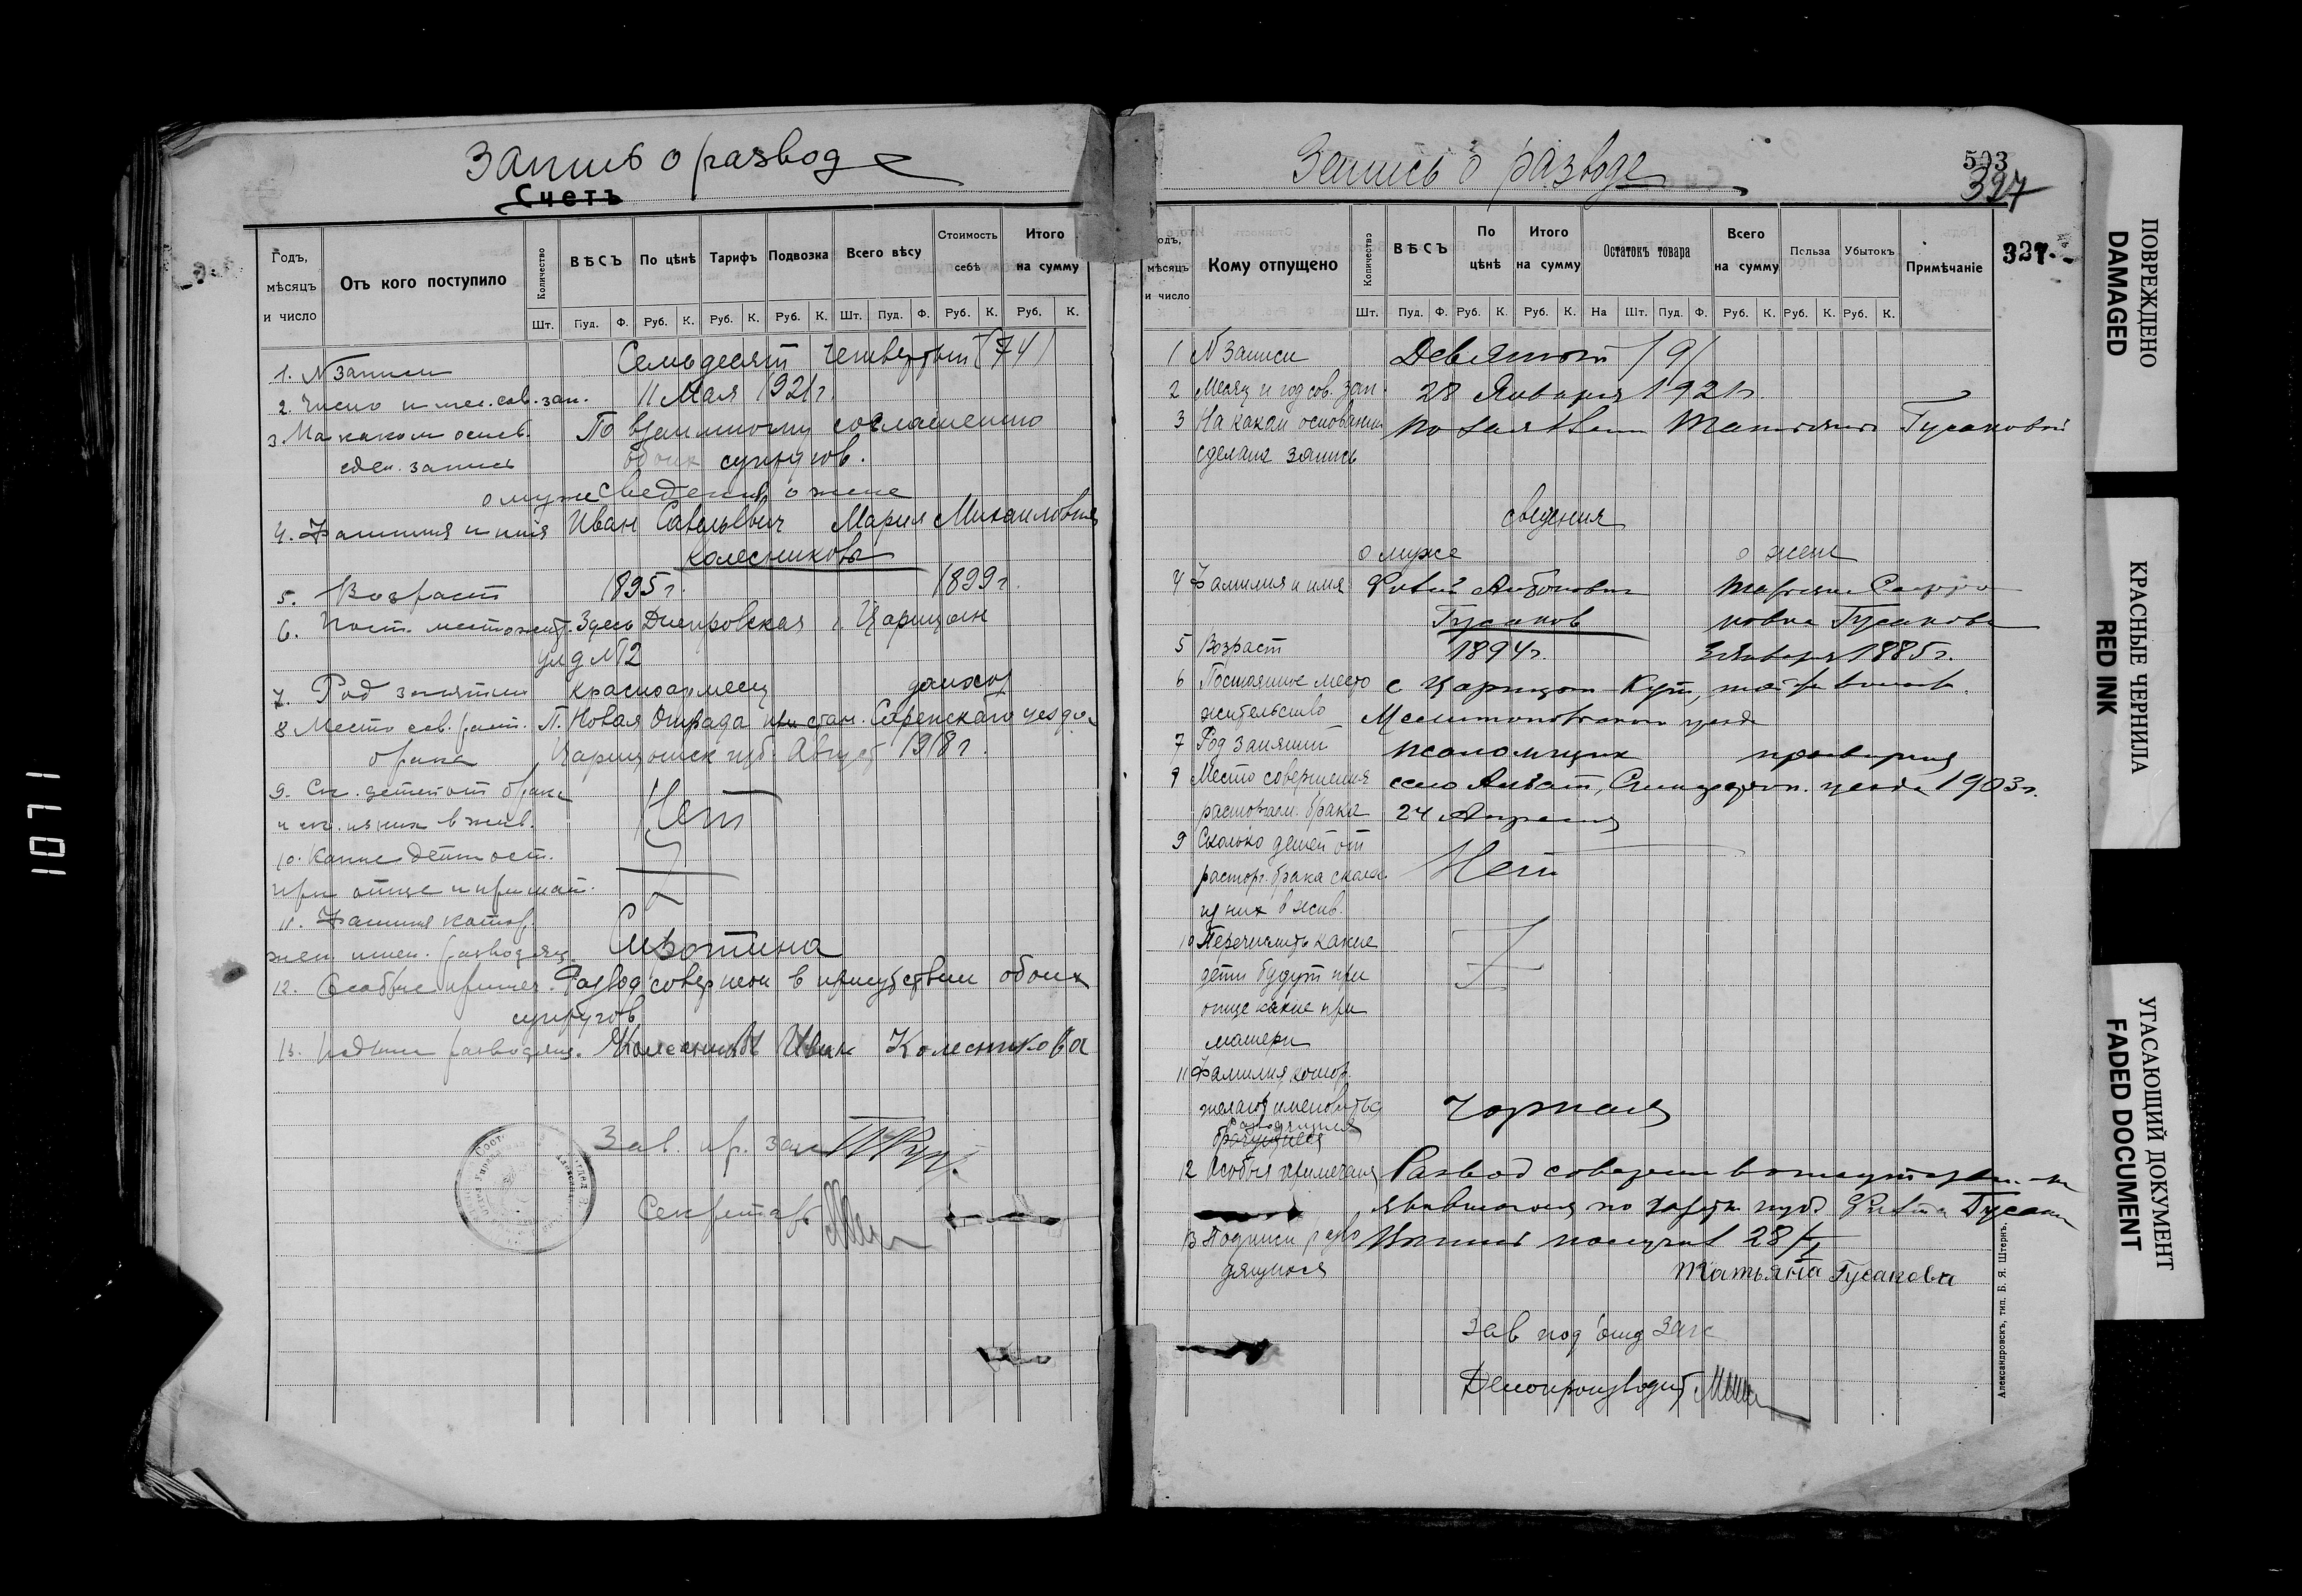 Запись о разводе
Счетъ
Годъ, мѣсяцъ и число
Отъ кого поступило
Количество
ВѢСЪ
По цѣнѣ
Тарифъ
Подвозка
Всего вѣсу
Стоимость себѣ
Итого на сумму
Шт. Пуд. Ф. Руб. К. Руб. К. Руб. К. Шт. Пуд. Ф. Руб. К. Руб. К.
1. N записи Семьдесят четвертый (74)
2. Число и мес. сов. зап. 11 Мая 1921 г.
3. На каком основ. По взаимному соглашению
сдел. запись обоих супругов.
о муже Сведения о жене
4. Фамилия и имя Иван Савельевич Мария Михайловна
Колесниковы
5. Возраст 1895 г. 1899 г.
6. Пост. местожит. Здесь Днепровская г. Царицын
ул д №12
7. Род занятий красноармеец домхоз
8 Место сов. раст. П. Новая Отрада при стан. Сарепскаго уезда
брака Царицынск губ. Август 1918 г.
9. Ск. детей от брака
и ск. из них в жив. Нет
10. Какие дети ост.
при отце и при мат.
11. Фамилия котор.
жел. имен. разводящ. Сиротина
12. Особые примеч. Развод совершен в присутствии обоих
супругов
13. Подписи разводящ. Колесников Иван Колесникова
Зав. пр. зап
Секретарь
Запись о разводе
503
327
327.
мѣсяцъ и число
Кому отпущено
Количество
ВѢСЪ
По цѣнѣ
Итого на сумму
Остатокъ товара
Всего на сумму
Польза
Убытокъ
Примѣчаніе
Шт. Пуд. Ф. Руб. К. Руб. К. На Шт. Пуд. Ф. Руб. К. Руб. К. Руб. К.
1 N Записи Девятый /9/
2 Месяц и год сов. зап. 28 Января 1921 г
3 На каком основании По заявлению Татьяны Гусаковой
сделана запись
сведения
о муже о жене
4 Фамилия и имя
Гусаков новна Гусакова
5 Возраст 1894 г. 3 января 1885 г.
6 Постоянное место с Царицын Кут, той же волост.
жительство Мелитопольского уезда
7 Род занятий псаломщик просвирня
8 Место совершения село 1903 г.
расторжен. брака 24 Апреля
9 Сколько детей от
расторг. брака сколь. Нет
из них в жив.
10 Перечислить какие
дети будут при
отце какие при
матери
11 Фамилия котор.
желают именоваться Чорная
разводящиеся
брачущиеся
12 Особые примечания Развод совершен в отсутствии не
явившагося по Гусакова
13 Подписи разво получил 28/I
дящихся Татьяна Гусакова
Зав под отд Загс
Делопроизводит
Александровскъ, тип. Б. Я. Штернъ.
1071
ПОВРЕЖДЕНО
DAMAGED
КРАСНЫЕ ЧЕРНИЛА
RED INK
УГАСАЮЩИЙ ДОКУМЕНТ
FADED DOCUMENT